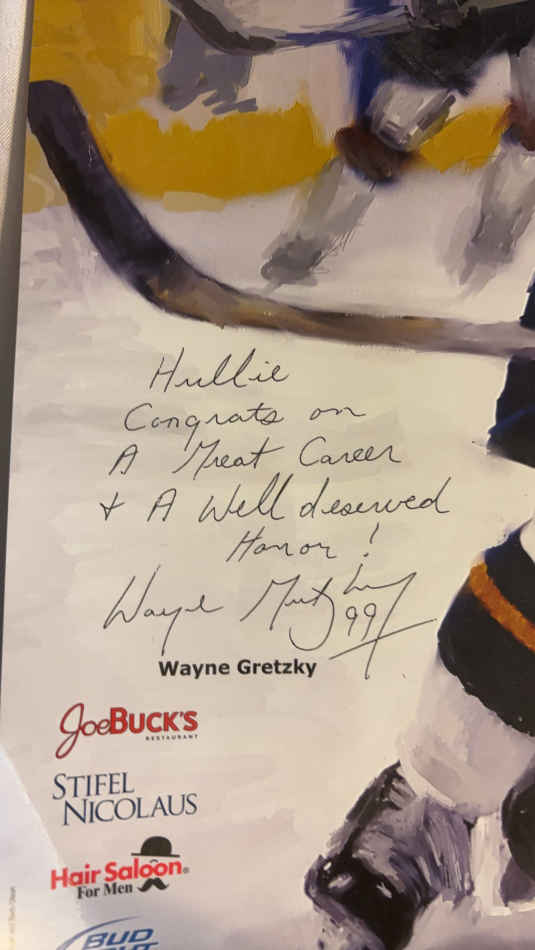 Hullie
Congrats on
A Great Career
& A Well deserved
Honor!
Wayne Gretzky
99
Wayne Gretzky
JoeBUCK'S
RESTAURANT
STIFEL
NICOLAUS
Hair Saloon®
For Men
BUD